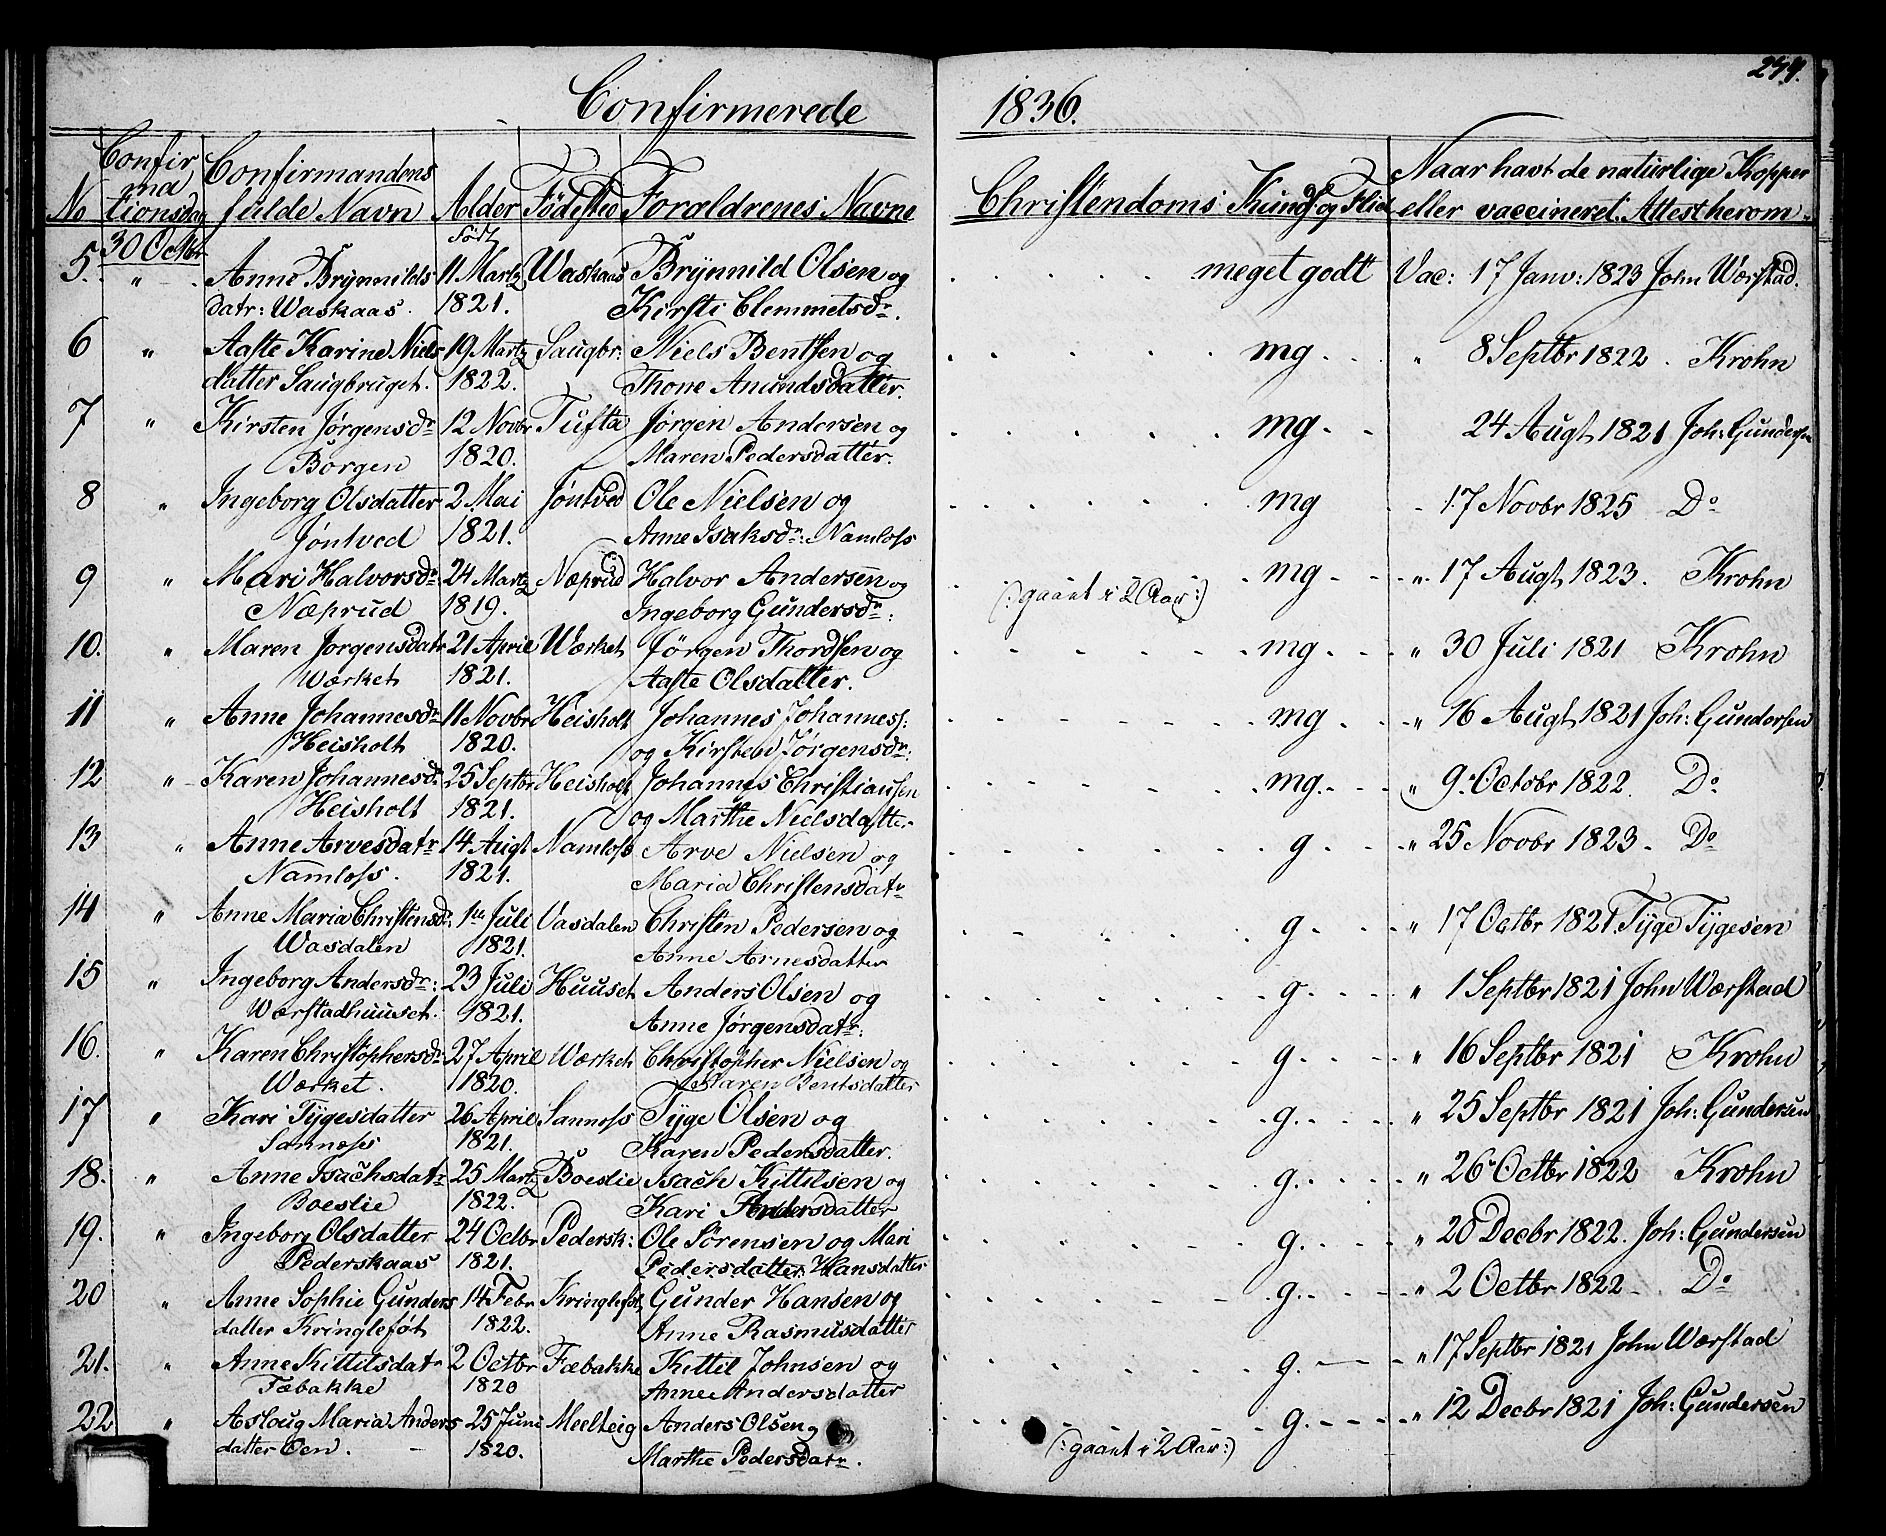 Confirmerede 1836.
No Confirmationsdag Confirmandens fulde Navn Alder Fødested Forældrenes Navne Christendoms Kundsk: og Flid Naar havt de naturlige Kopper eller vaccineret. Attest herom.
30 Octbr født
5. " Anne Brynnilds 11 Martz Waskaas Brynnild Olsen og meget godt Vac: 17 Janv: 1823 John Wærstad.
datr: Waskaas. 1821. Kirsti Clemmetsdr.
6 " Aaste Karine Niels 19 Martz Saugbr: Niels Bentsen og mg " 8 Septbr 1822. Krohn
datter Saugbruget. 1822. Thone Anundsdatter.
7 " Kirsten Jørgensdr 12 Novbr Tufta Jørgen Andersen og mg 24 Augt 1821 Joh: Gundersen
Borgen 1820. Maren Pedersdatter.
8 " Ingeborg Olsdatter 2 Mai Jøntved Ole Nielsen og mg 17 Novbr 1825 Do
Jøntved 1821. Anne Isaksdr: Namløss
9 " Mari Halvorsdr: 24 Martz Næprud Halvor Andersen og (: gaaet i 2 Aar :) mg " 17 Augt 1823. Krohn
Næprud 1819. Ingeborg Gundersdr:
10. " Maren Jørgensdatr 21 April Wærket Jørgen Thordsen og mg " 30 Juli 1821 Krohn
Wærket 1821. Aaste Olsdatter.
11 " Anne Johannesdr 11 Novbr Heisholt Johannes Johanness: mg " 16 Augt 1821 Joh: Gundersen
Heisholt 1820. og Kirsten Jørgensdr:
12 " Karen Johannesdr 25 Septbr Heisholt Johannes Christiansen mg. " 9 Octobr 1822. Do
Heisholt 1821. og Marthe Nielsdatter
13 " Anne Arvesdatr 14 Augt Namløss Arve Nielsen og g " 25 Novbr 1823. Do
Namløss. 1821. Maria Christensdatr
14 " Anne Maria Christensdr: 1ste Juli Vasdalen Christen Pedersen og g " 17 Octbr 1821. Tyge Tygesen
Wasdalen 1821. Anne Arnesdatter
15 " Ingeborg Andersdr: 23 Juli Huuset Anders Olsen og g " 1 Septbr 1821 John Wærstad
Wærstadhuuset. 1821. Anne Jørgensdatr:
16. " Karen Christophersdr: 27 April Wærket Christopher Nielsen og g " 16 Septbr 1821 Krohn
Wærket. 1820. Maren Bentsdatter
17 " Kari Tygesdatter 26 April Sannøss Tyge Olsen og g " 25 Septbr 1821 Joh: Gundersen
Sannøss 1821. Karen Pedersdatter.
18. " Anne Isachsdatr 25 Martz Boeslie Isach Kittilsen og g " 26 Octbr 1822 Krohn
Boeslie 1822. Kari Andersdatter
19. " Ingeborg Olsdatter 24 Octbr Pedersk: Ole Sørensen og Mari g. " 20 Decbr 1822. Joh: Gundersen
Pederskaas 1821. Pedersdatter Hansdatter
20 " Anne Sophie Gunders 14 Febr Kringlefot, Gunder Hansen og g " 2 Octbr 1822 Do
datter Kringlefot 1822. Anne Rasmusdatter
21. " Anne Kittilsdatr 2 Octbr Fæbakke Kittil Johnsen og g " 17 Septbr 1821 John Wærstad
Fæbakke 1820 Anne Andersdatter
22 " Asloug Maria Anders 25 Juni Meelteig Anders Olsen og (: gaaet i 2 Aar :) g " 12 Decbr 1821 Joh: Gundersen
datter Oen. 1820. Marthe Pedersdatr.